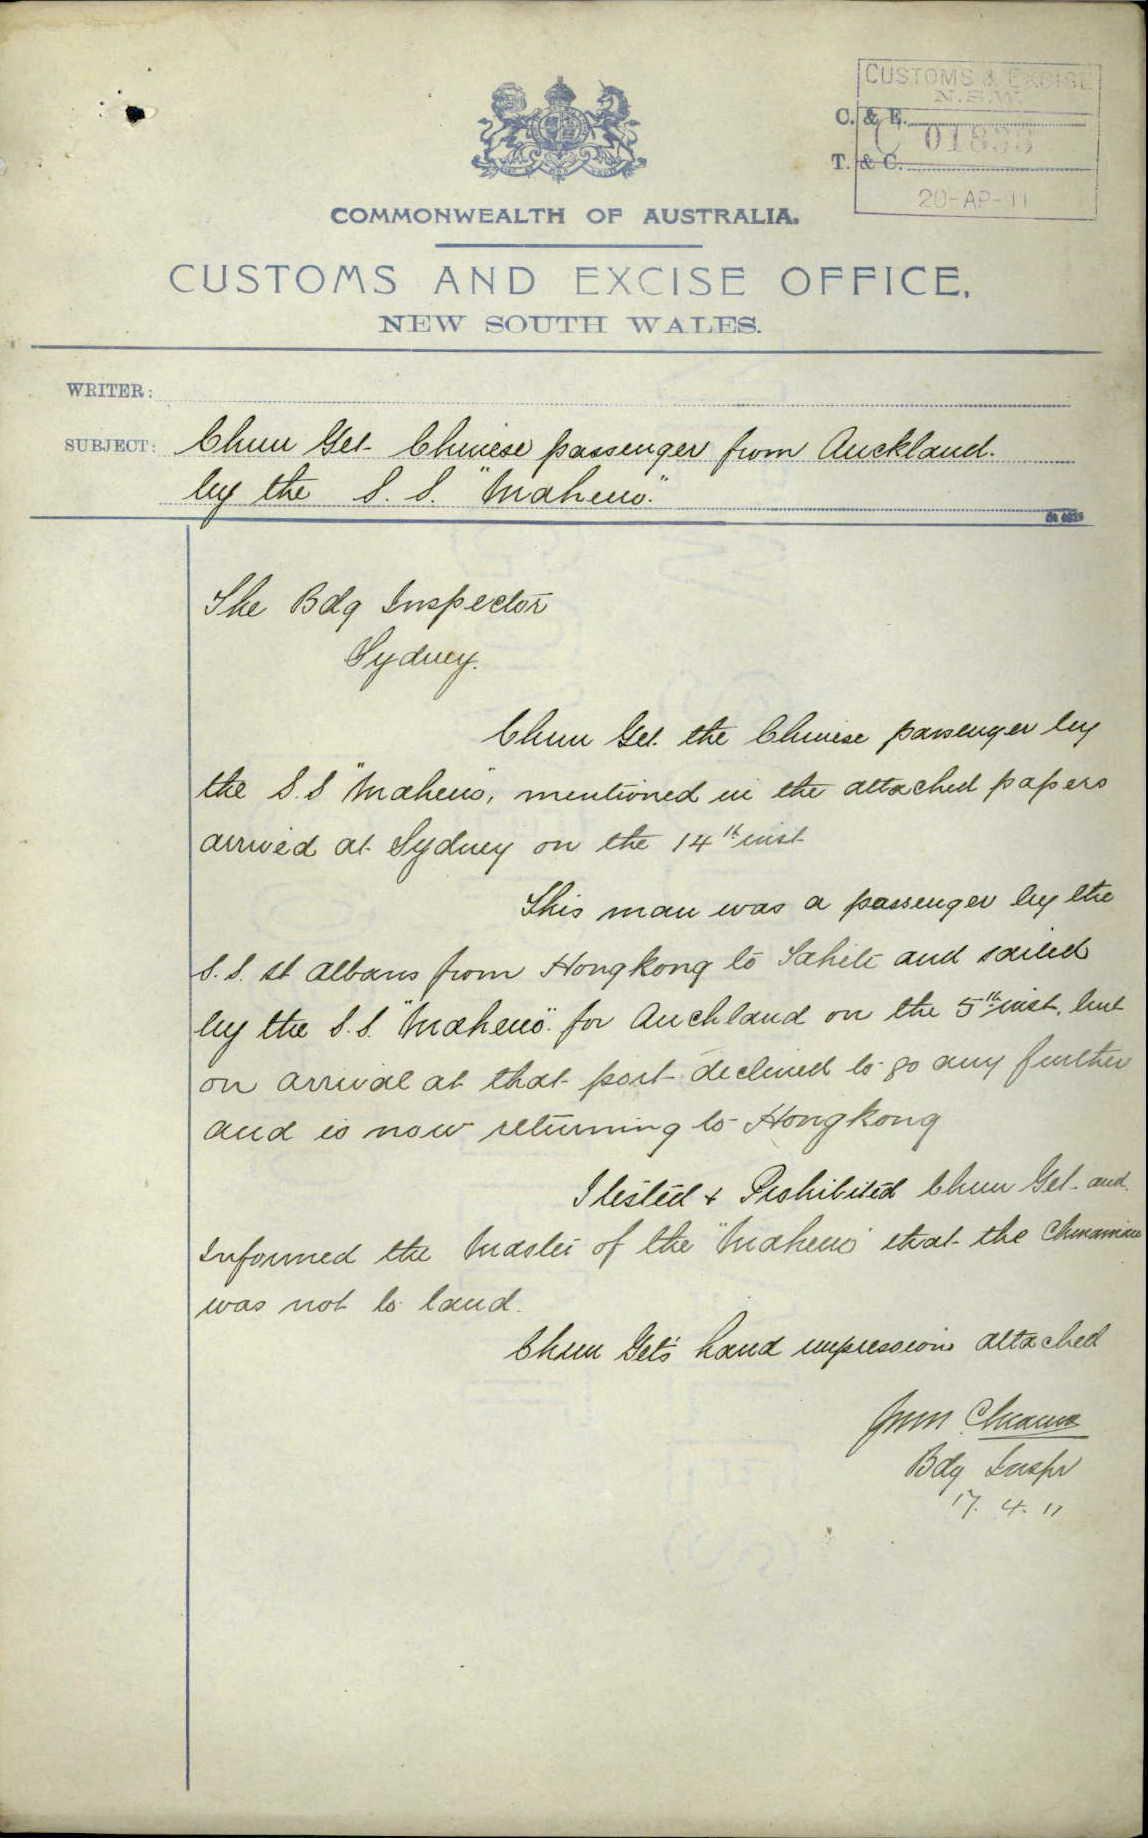 CUSTOMS & EXCISE
N.S.W.
C. & E.
C 01
T. & C.
20-AP-11
COMMONWEALTH OF AUSTRALIA.
CUSTOMS AND EXCISE OFFICE,
NEW SOUTH WALES.
WRITER:
SUBJECT: Chun Get Chinese passenger from Auckland.
by the S. S. "Maheno".
The Bdg Inspector
Sydney.
Chun Get the Chinese passenger by
the S.S "Maheno", mentioned in the attached papers
arrived at Sydney on the 14th inst
This man was a passenger by the
S.S. St Albans from Hongkong to Tahiti and sailed
by the S.S. "Maheno" for Auckland on the 5th inst, but
on arrival at that port declined to go any further
and is now returning to Hongkong
I tested & Prohibited Chun Get and
Informed the Master of the "Maheno" that the Chinaman
was not to land.
Chun Get's hand impressions attached
Bdg Inspr
17. 4. 11